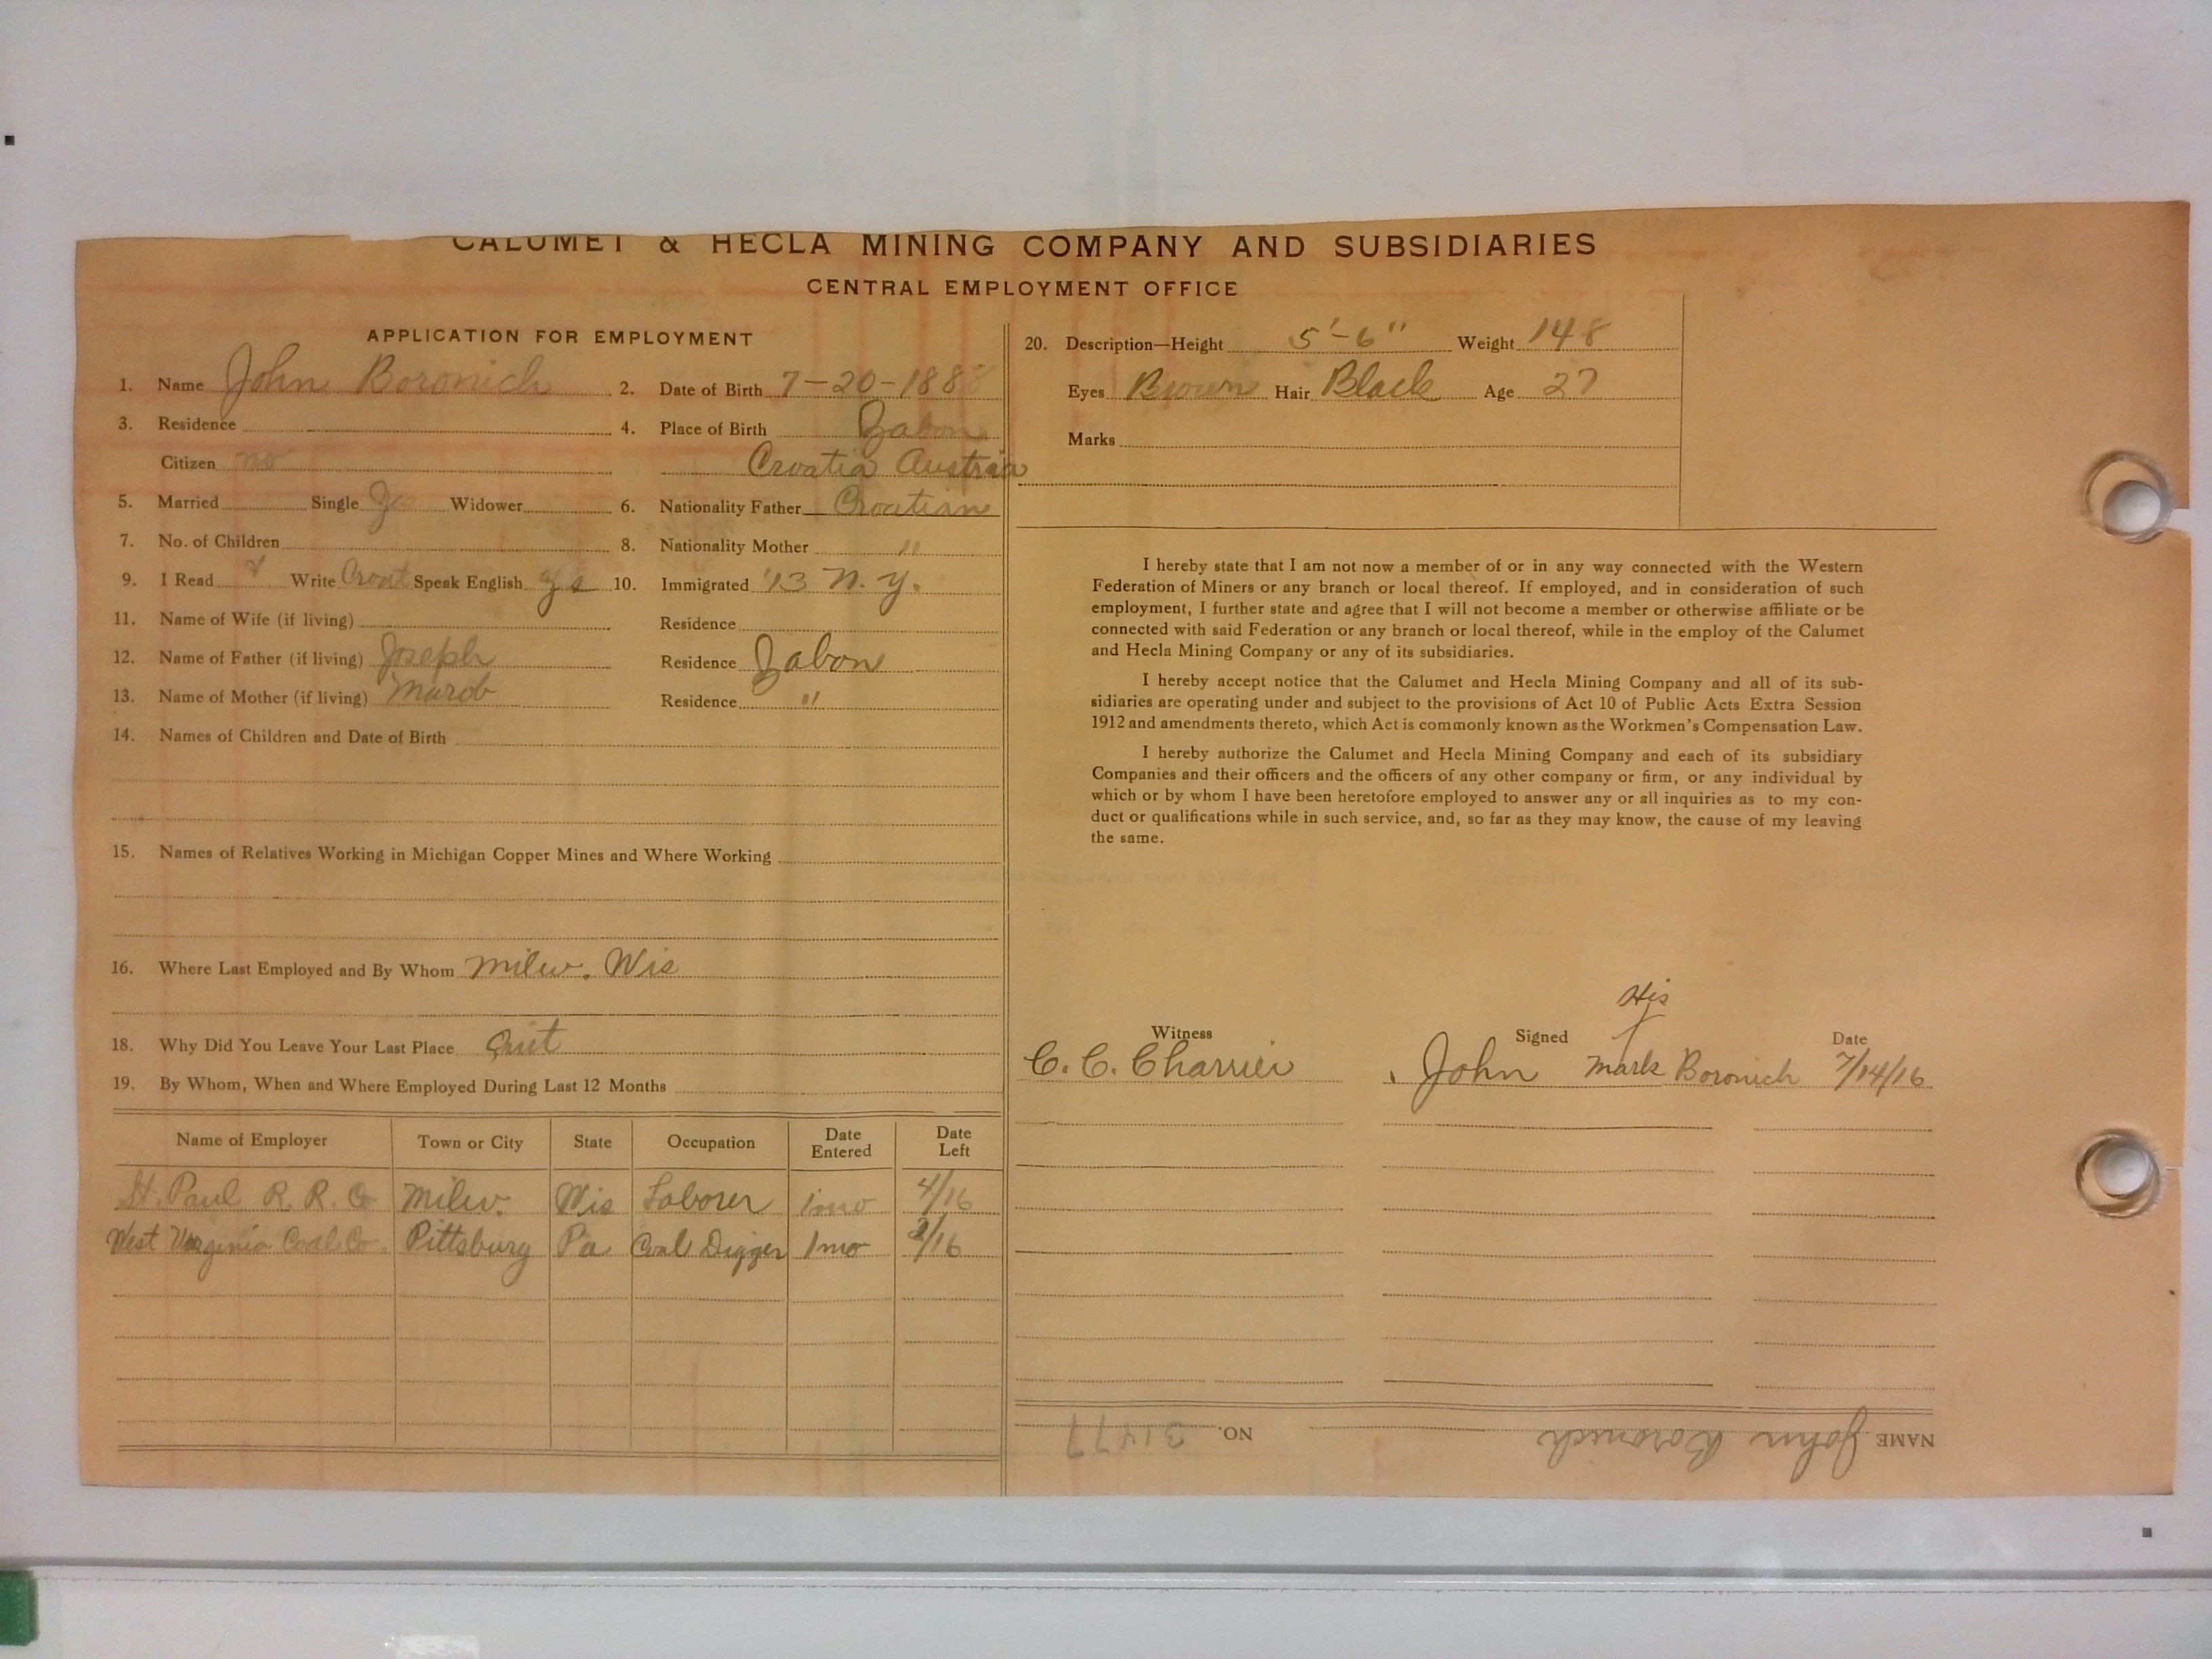 CALUMET & HECLA MINING COMPANY AND SUBSIDIARIES
CENTRAL EMPLOYMENT OFFICE
APPLICATION FOR EMPLOYMENT
1. Name John Boronich 2. Date of Birth 7-20-1888
3. Residence 4. Place of Birth Zabon
Citizen no Croatia Austria
5. Married Single Yes Widower 6. Nationality Father Croatian
7. No. of Children 8. Nationality Mother "
9. I Read & Write Croat Speak English yes 10. Immigrated '13 N.Y.
11. Name of Wife (if living) Residence
12. Name of Father (if living) Joseph Residence Zabon
13. Name of Mother (if living) Residence "
14. Names of Children and Date of Birth
15. Names of Relatives Working in Michigan Copper Mines and Where Working
16. Where Last Employed and By Whom Milw. Wis
18. Why Did You Leave Your Last Place Quit
19. By Whom, When and Where Employed During Last 12 Months
Name of Employer Town or City State Occupation Date Entered Date Left
St. Paul R. R. Co Milw. Wis Laborer 1mo 4/16
West Virginia Coal Co. Pittsburg Pa Coal Digger 1mo /16
20. Description—Height 5'-6" Weight 148
Eyes Brown Hair Black Age 27
Marks
I hereby state that I am not now a member of or in any way connected with the Western
Federation of Miners or any branch or local thereof. If employed, and in consideration of such
employment, I further state and agree that I will not become a member or otherwise affiliate or be
connected with said Federation or any branch or local thereof, while in the employ of the Calumet
and Hecla Mining Company or any of its subsidiaries.
I hereby accept notice that the Calumet and Hecla Mining Company and all of its sub-
sidiaries are operating under and subject to the provisions of Act 10 of Public Acts Extra Session
1912 and amendments thereto, which Act is commonly known as the Workmen's Compensation Law.
I hereby authorize the Calumet and Hecla Mining Company and each of its subsidiary
Companies and their officers and the officers of any other company or firm, or any individual by
which or by whom I have been heretofore employed to answer any or all inquiries as to my con-
duct or qualifications while in such service, and, so far as they may know, the cause of my leaving
the same.
His
Witness Signed Date
C. C. Charrier John mark Boronich 7/14/16
NAME John Boronich NO. 31477